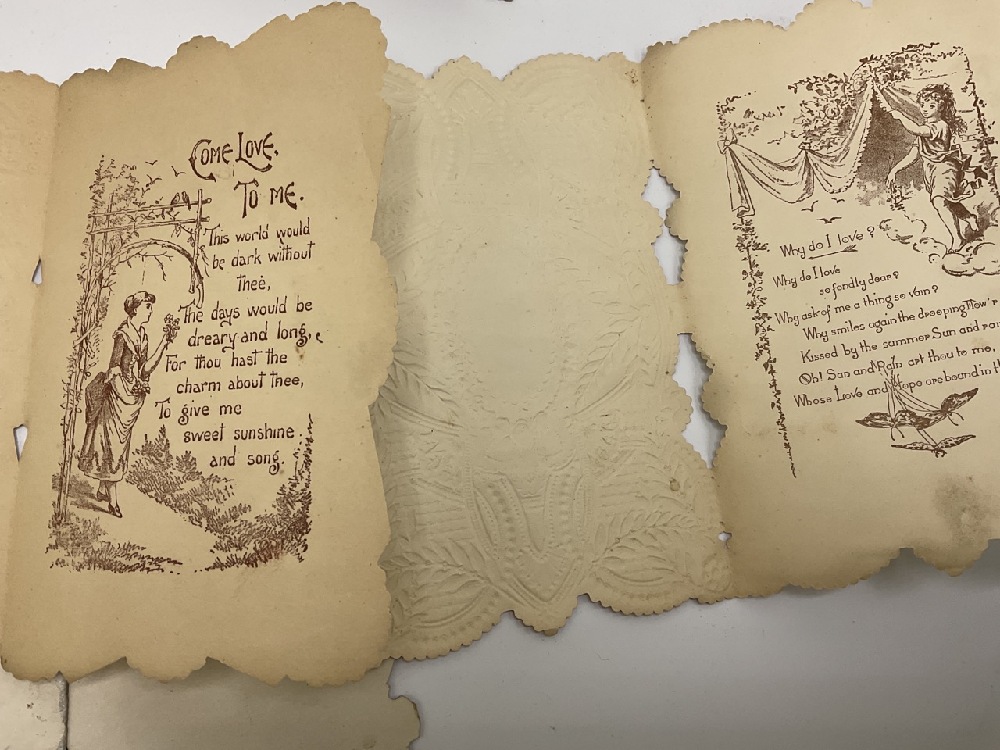 COME LOVE.
TO ME.
This world would
be dark without
thee,
The days would be
dreary and long,
For thou hast the
charm about thee,
To give me
sweet sunshine
and song.
Why do I love?
Why do I love
so fondly dear?
Why ask of me a thing so vain?
Why smiles again the drooping flow'r
Kissed by the summer Sun and
Oh! Sun and Rain art thou to me,
Whose Love and Hope are bound in